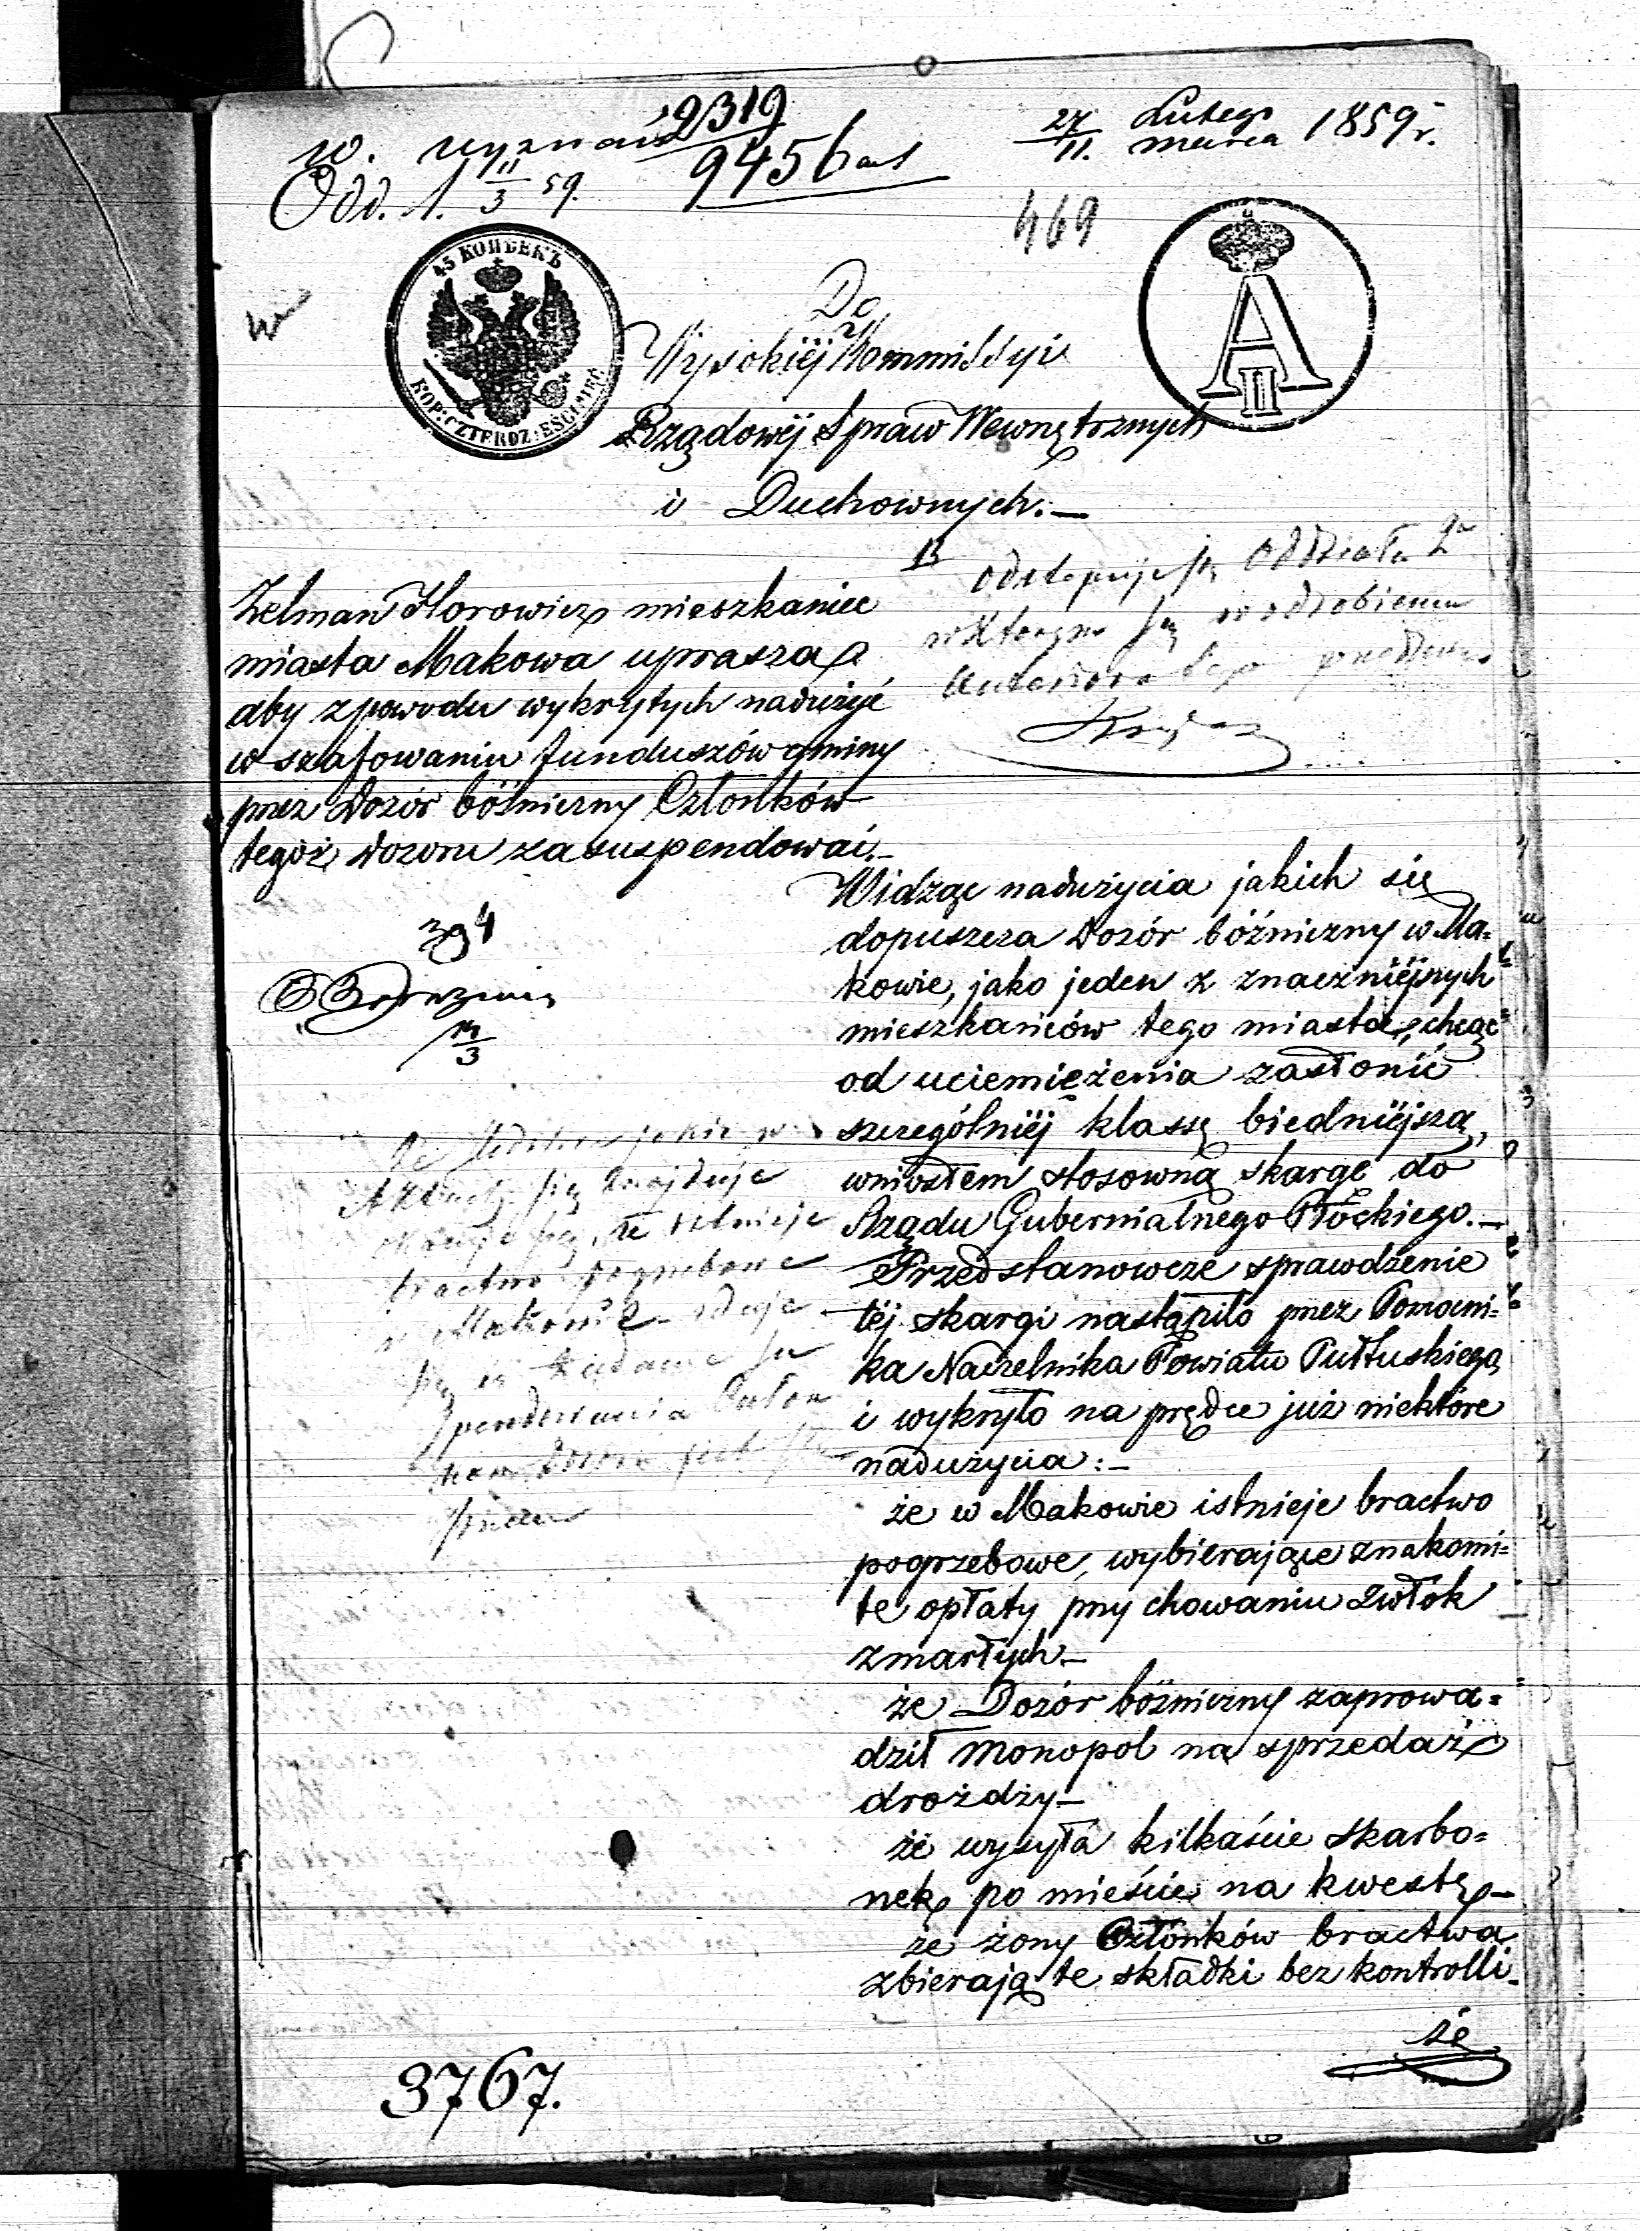 w. wyznań 2319
9456
27/11. Lutego marca 1859 r.
Odd. 1. 11/3 59.
469
45 КОПѢЕКЪ
KOP: CZTERDZIEŚCI PIĘĆ
A II
Do
Wysokiéj Kommissyi
Rządowéj Spraw Wewnętrznych
i Duchownych.—
Zelman Horowicz mieszkaniec
miasta Makowa uprasza
aby z powodu wykrytych nadużyć
w szafowaniu funduszów gminy
przez Dozór bóżniczny Członków
tegoż Dozoru zasuspendować.—
odstępuje się Oddziału
w którym się
394
14/3
Widząc nadużycia jakich się
dopuszcza Dozór bóźniczny w Ma=
kowie, jako jeden z znaczniéjszych
mieszkańców tego miasta, chcąc
od uciemiężenia zasłonić
szczególniéj klassę biedniéjszą,
wniosłem stosowną skargę do
Rządu Gubernialnego Płockiego.—
Przedstanowcze sprawdzenie
téj skargi nastąpiło przez Pomocni=
ka Naczelnika Powiatu Pułtuskiego
i wykryło na prędce już niektóre
nadużycia:—
że w Makowie istnieje bractwo
pogrzebowe, wybierające znakomi=
te opłaty przy chowaniu zwłok
zmarłych—
że Dozór bóźniczny zaprowa=
dził monopol na sprzedaż
drożdży—
że wysyła kilkaście skarbo=
nek po mieście na kwestę—
że żony Członków bractwa
zbierają te składki bez kontrolli—
że
znajduje
że istnieje
bractwo pogrzebowe
w Makowie
3767.